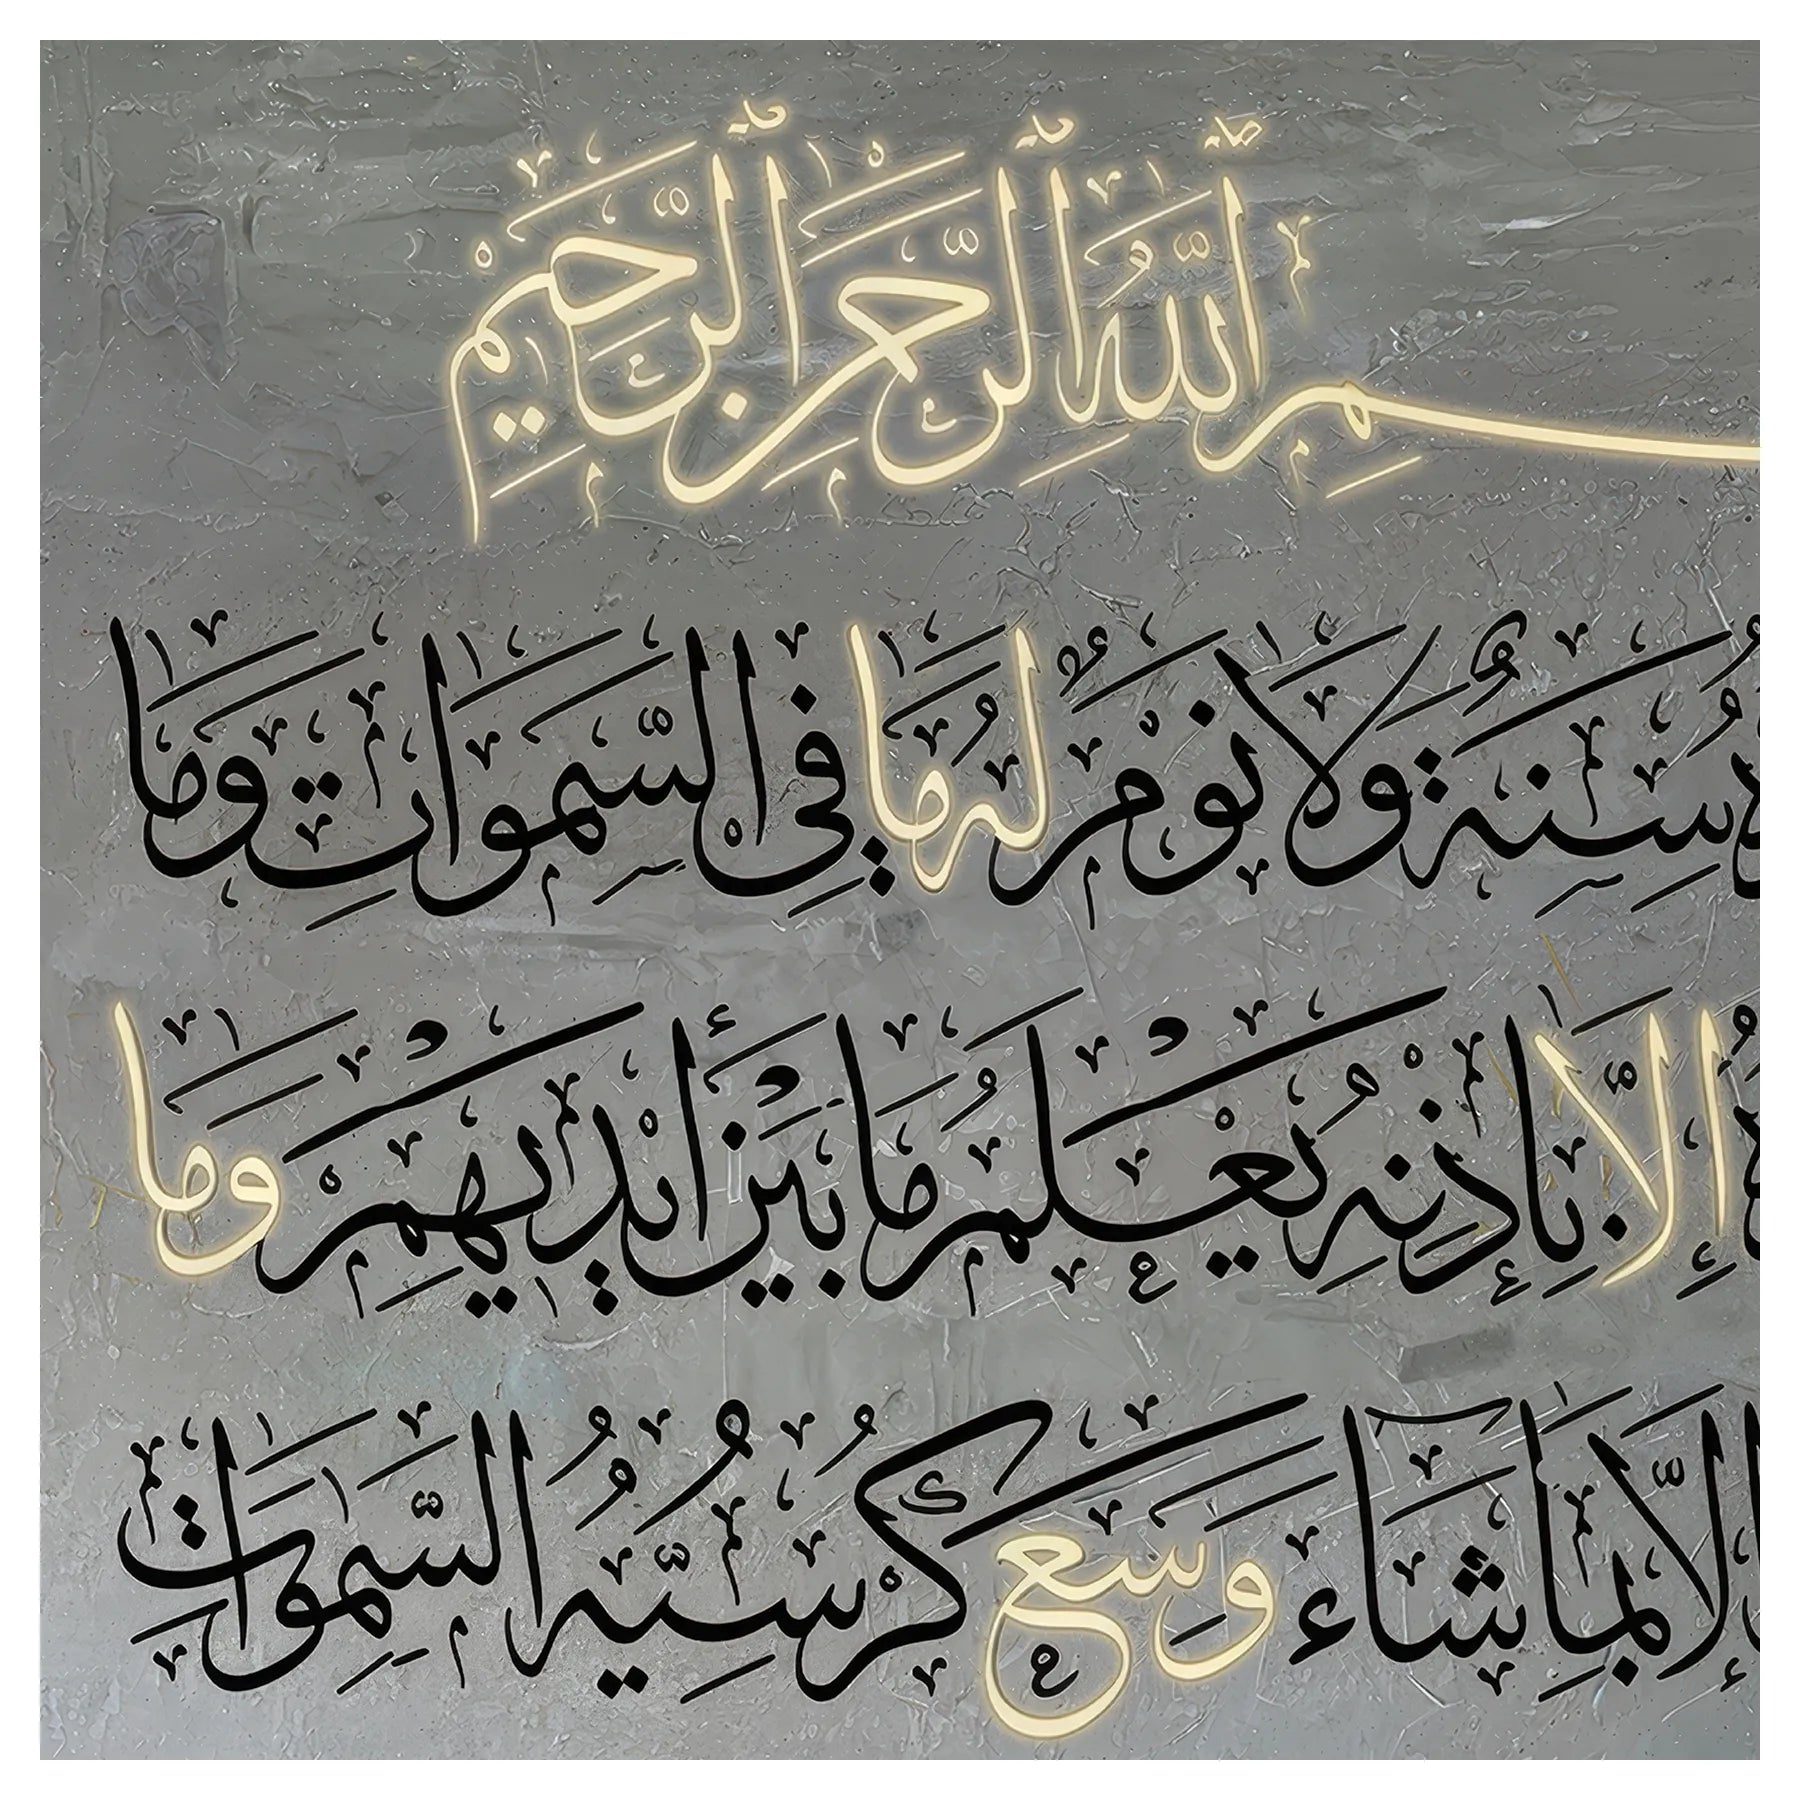 ـسْمِ اللَّهِ الرَّحْمَٰنِ الرَّحِيمِ
سِنَةٌ وَلَا نَوْمٌ لَهُ مَا فِي السَّمٰوَاتِ وَمَا
إِلَّا بِإِذْنِهِ يَعْلَمُ مَا بَيْنَ أَيْدِيهِمْ وَمَا
إِلَّا بِمَا شَاءَ وَسِعَ كُرْسِيُّهُ السَّمٰوَاتِ